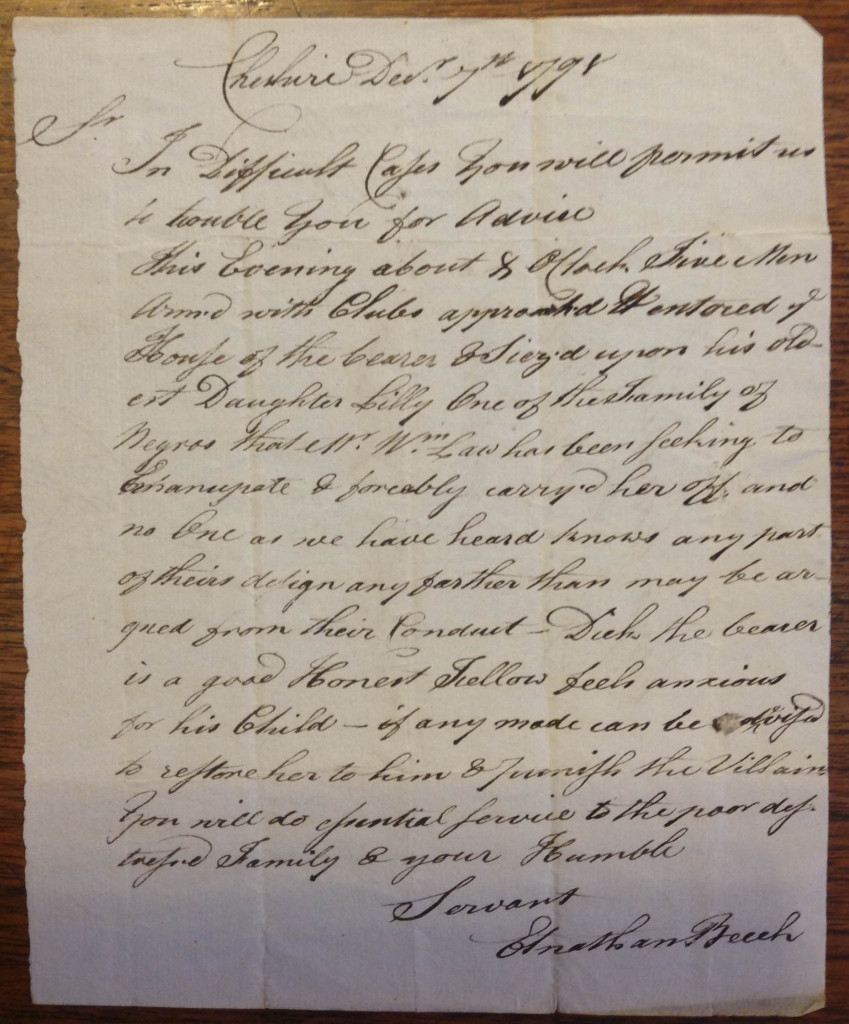 Cheshire Decr. 7th 1791
Sr.
In Difficult Cases You will permit us
to trouble You for Advise
this Evening about 8 OClock Five Men
Arm'd with Clubs approachd & entored ye
House of the bearer & Siez'd upon his old-
est Daughter Lilly One of the Family of
Negros that Mr. Wm. Law has been seeking to
Emancipate & forceably carry'd her off, and
no One as we have heard knows any part
of theirs design any farther than may be ar-
gued from their Conduct – Dick the bearer
is a good Honest Fellow feels anxious
for his Child – if any mode can be advis'd
to restore her to him & punish the Villains
You will do essential service to the poor des-
tress'd Family & your Humble
Servant
Elnathan Beech